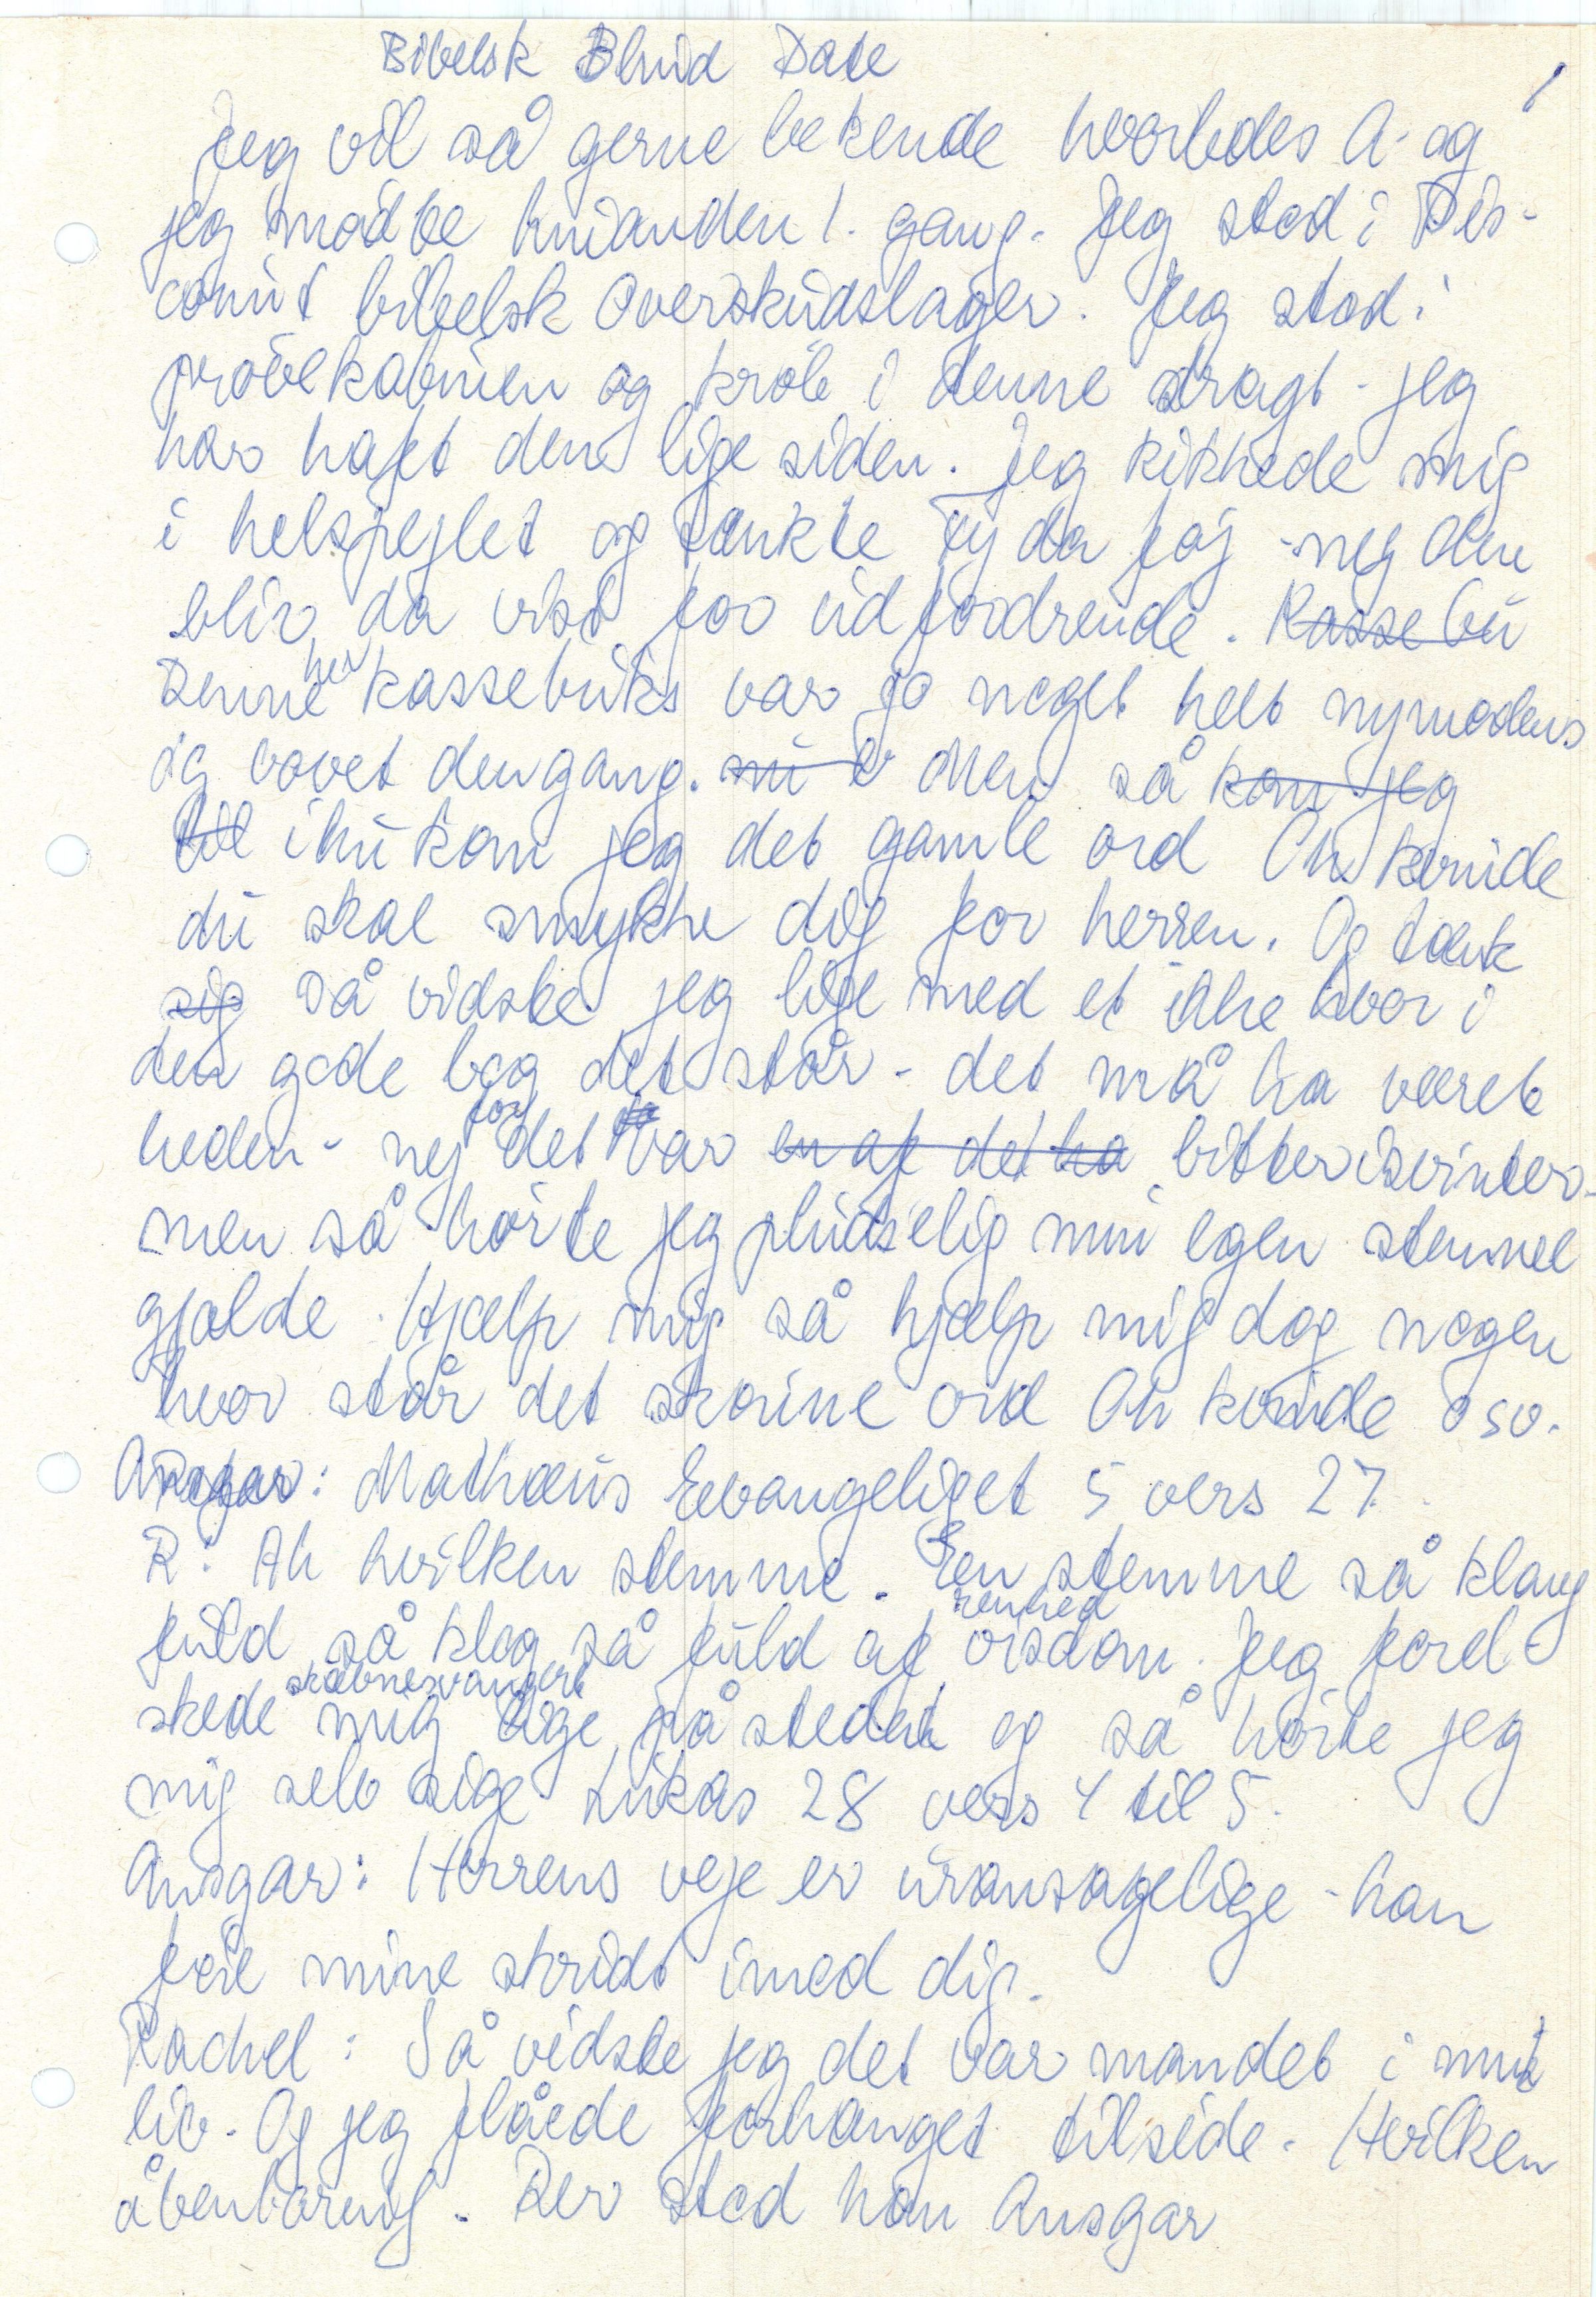 Bibelsk Blind Date
1
Jeg vil så gerne bekende hvorledes A. og
jeg mødte hinanden 1. gang. Jeg stod i Dis-
count bibelsk Overskudslager. Jeg stod i
prøvekabinen og krøb i denne dragt - jeg
har haft den lige siden. Jeg kikkede mig
i helspejlet og tænkte Fy da føj - nej den
bliv da vist for udfordrende. Kassebu
Denne her kassebuks var jo noget helt nymodens
og vovet dengang. nu e Men så kom jeg
til ihukom jeg det gamle ord Oh kvinde
du skal smykke dig for herren. Og tænk
sig så vidste jeg lige med et ikke hvor i
den gode bog det står - det må ha været
heden - nej for det var en af det ha bitter isvinter -
men så hørte jeg pludselig min egen stemme
gjalde. Hjælp mig så hjælp mig dog nogen
hvor står det skønne ord Oh kvinde osv.
Ansgar: Mathæus Evangeliget 5 vers 27.
R: Ah hvilken stemme. En stemme så klang
fuld så klog så fuld af renhed visdom. Jeg forel-
skede skæbnesvangert mig lige på stedet og så hørte jeg
mig selv sige Lukas 28 vers 4 til 5.
Ansgar: Herrens veje er uransagelige - han
føre mine skridt imod dig.
Rachel: Så vidste jeg det var mandet i mit
liv. Og jeg flåede forhænget tilside. Hvilken
åbenbaring. Der stod han Ansgar